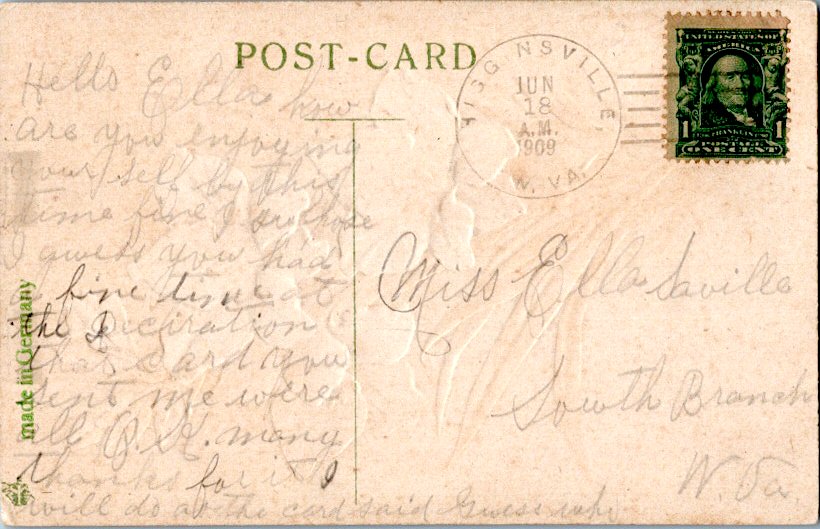 POST-CARD
HIGGINSVILLE,
JUN
18
A.M.
1909
W. VA.
SERIES OF 1902
UNITED STATES OF
AMERICA
1 FRANKLIN 1
POSTAGE
ONE CENT
Hello Ella how
are you enjoying
your self by this
time fine I suppose
I guess you had
a fine time at
the Deciration
that card you
sent me were
all O.K. many
thanks for it I
will do as the card said Guess who
Miss Ella Saville
South Branch
W. Va.
made in Germany